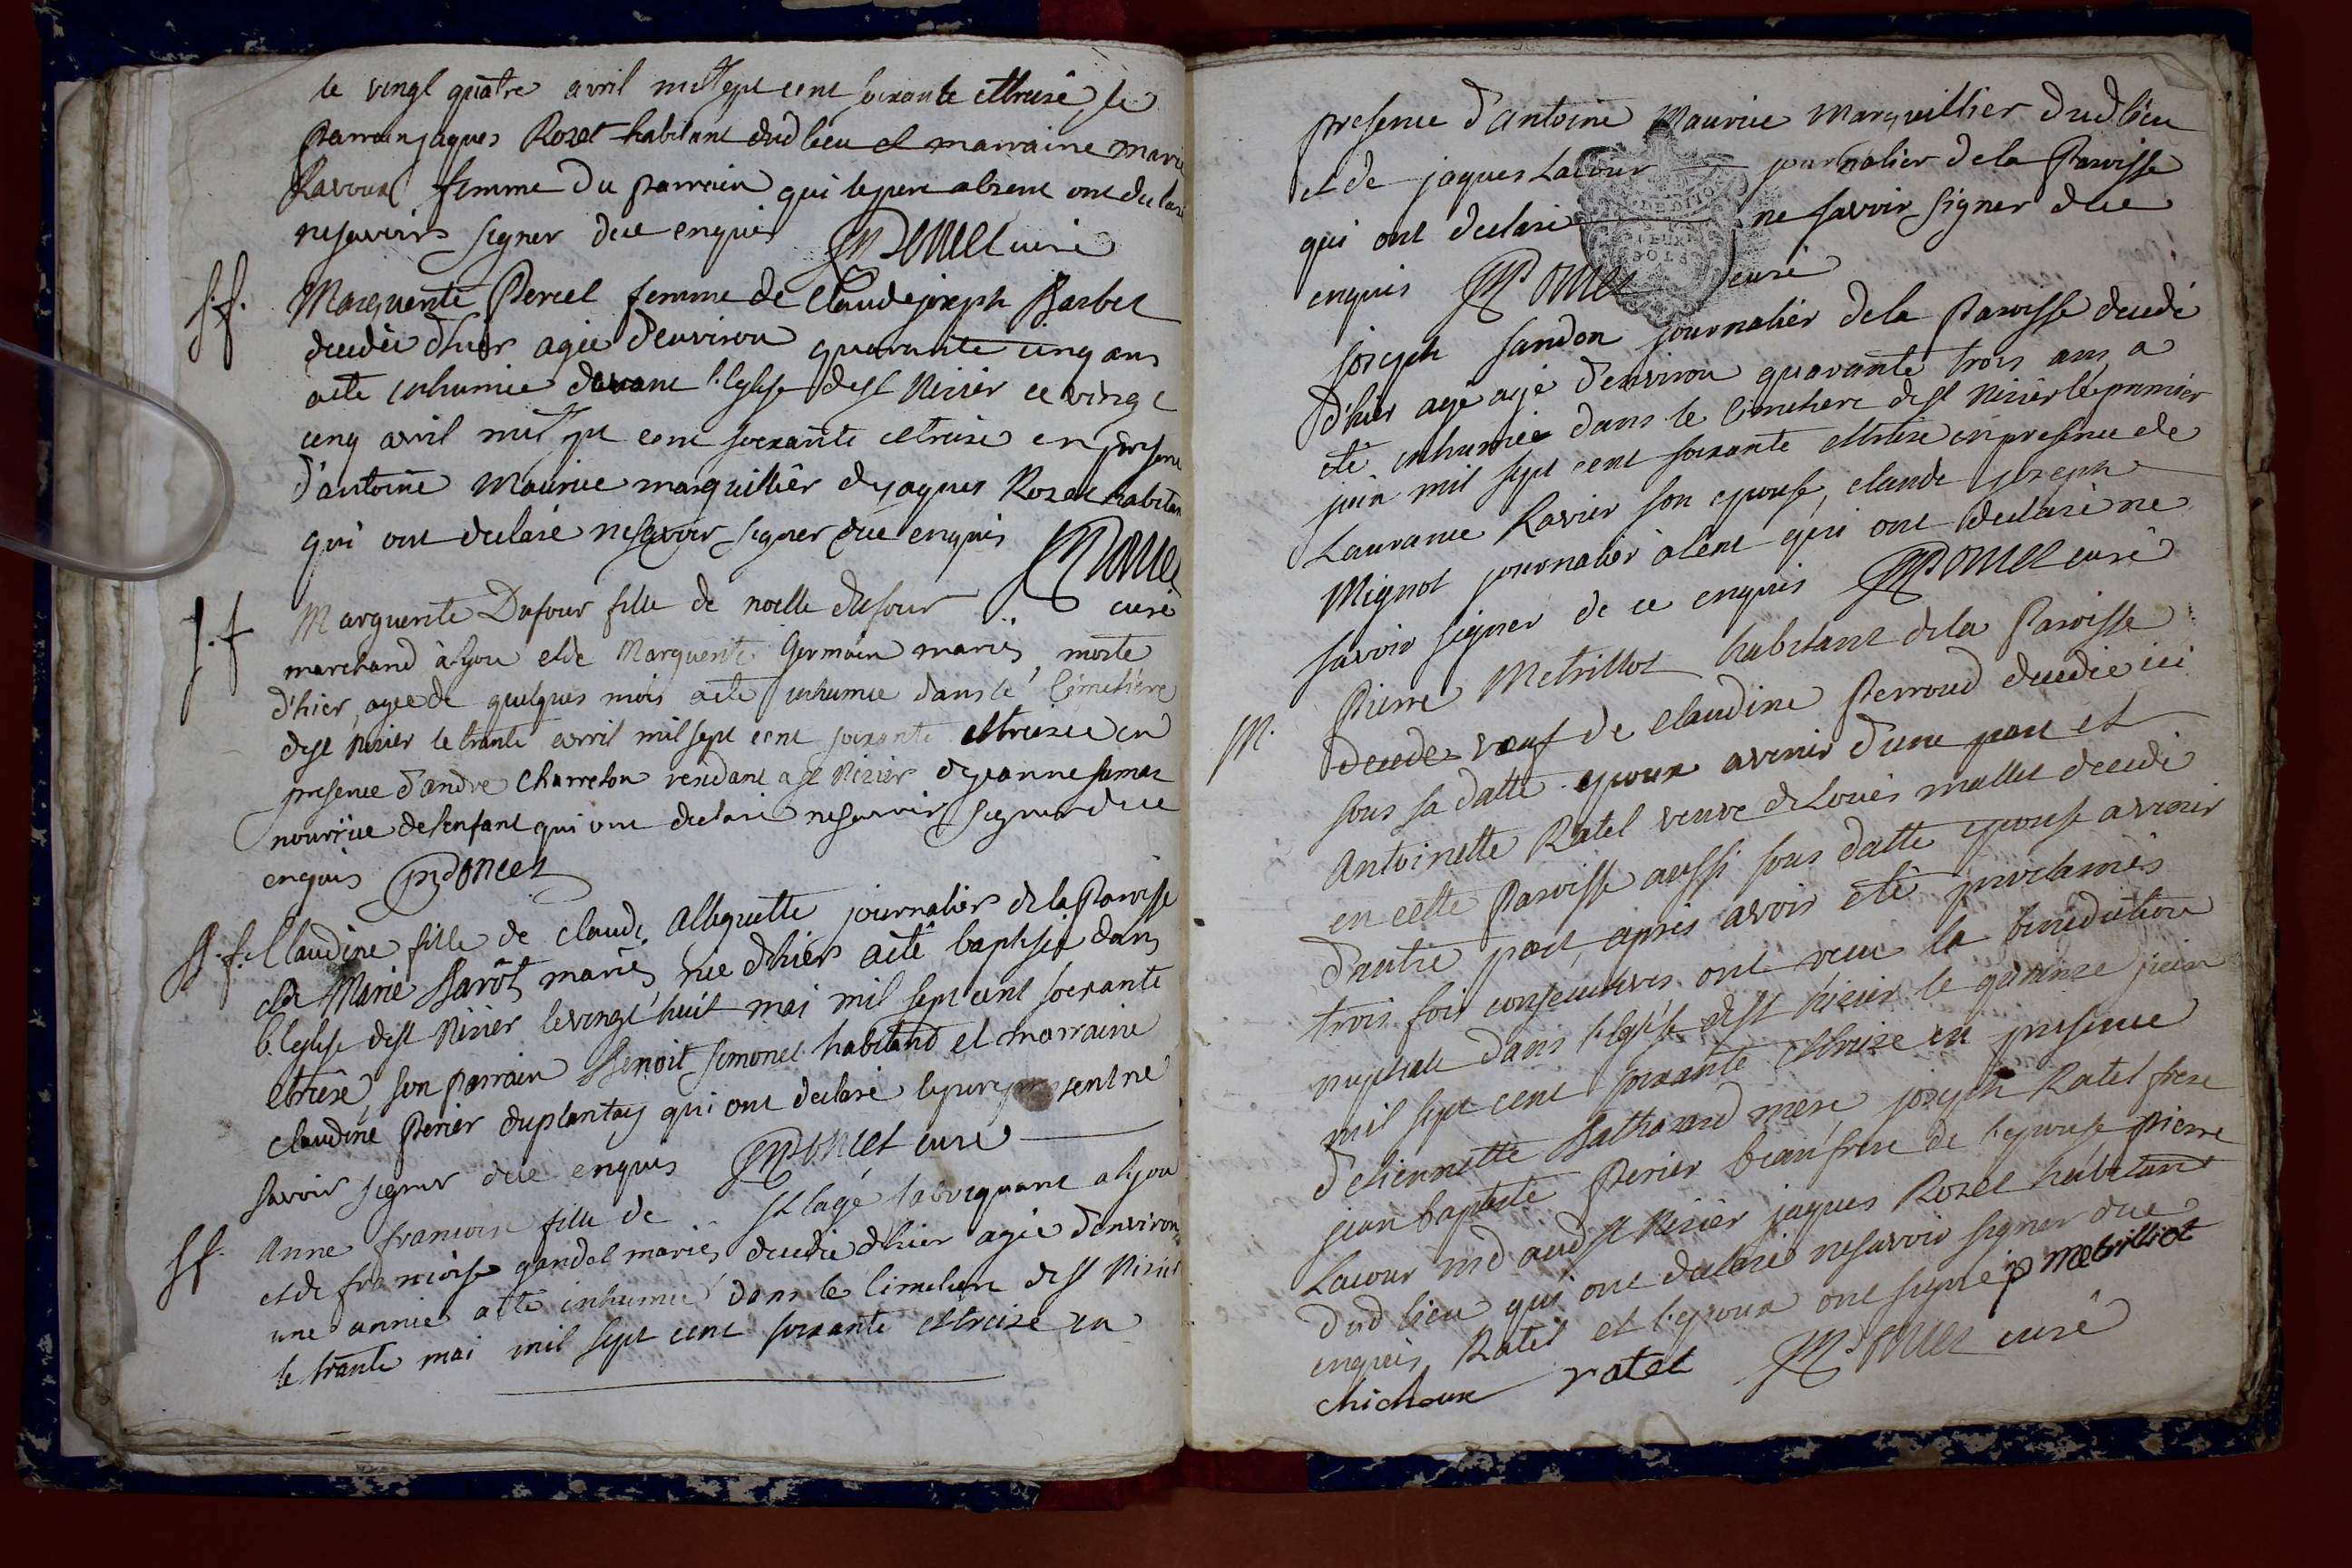 le vingt quatre avril mil sept cent soixante et treise, le
Parrain jaques Rozet habitant dud lieu et marraine marie
Ravoux femme du parrain qui le pere absent ont declaré
ne savoir signer de ce enquis Poncet curé
S.f. Marguerite Percet femme de Claude joseph Barbet
decedée d'hier agée d'environ quarante cinq ans
a été inhumée devant l'Eglise de St Nizier ce vingt
cinq avril mil sept cent soixante et treise en presence
d'antoine Maurice marguillier de jaques Rozet habitant
qui ont declaré ne savoir signer de ce enquis Poncet
curé
S.f Marguerite Dufour fille de noelle dufour
marchand à lyon et de Marguerite Germain mariés, morte
d'hier, agée de quelques mois a été inhumée dans le Cimetiere
de St Nizier le trante avril mil sept cent soixante et treize en
presence d'andré Charreton residant a St Nizier de jeanne
nourrice de l'enfant qui ont declaré ne savoir signer de ce
enquis Poncet
B.f. Claudine fille de claude Allequette journalier de la Paroisse
et de Marie Barôt mariés, née d'hier a été baptisée dans
l'Eglise de St Nizier le vingt huit mai mil sept cent soixante
et treise, son parrain Benoit Simonet habitant et marraine
claudine Perier duplantay qui ont declaré le pere present ne
savoir signer de ce enquis Poncet curé
S.f. Anne françoise fille de St lagé fabriquant a lyon
et de françoise gandel mariés decedée d'hier agée d'environ
une année a été inhumée dans le Cimetiere de St Nizier
le trante mai mil sept cent soixante et treize en
presence d'Antoine Maurice Marguillier dud lieu
et de jaques Lacour journalier de la Paroisse
qui ont declaré ne savoir signer de ce
enquis Poncet curé
joseph Sandon journalier de la Paroisse decedé
d'hier agé agé d'environ quarante trois ans a
été inhumée dans le Cimetiere de St Nizier le premier
juin mil sept cent soixante et treize en presence de
Laurance Ravier son epouse, claude joseph
Mignot journalier à lent qui ont declaré ne
savoir signer de ce enquis Poncet curé
M. Pierre Metrillot habitant de la Paroisse
decede veuf de Claudine Perroud decedée ici
sous sa datte epoux avenir d'une part et
Antoinette Ratel veuve de Louis mallet decedé
en cette Paroisse aussi sous datte epouse avenir
d'autre part, après avoir été proclamés
trois fois consecutives ont recu la benediction
nuptiale dans l'Eglise de St Nizier le quinze juin
mil sept cent soixante et treize en presence
d'etiennette Bathard mere joseph Ratel frere
jean baptiste Perier beaufrere de l'epouse Pierre
Lacour md aud St Nizier jaques Rozet habitant
dud lieu qui ont declaré ne savoir signer de ce
enquis, Ratel et l'epoux ont signé p metrilliot
chichoux ratel Poncet curé